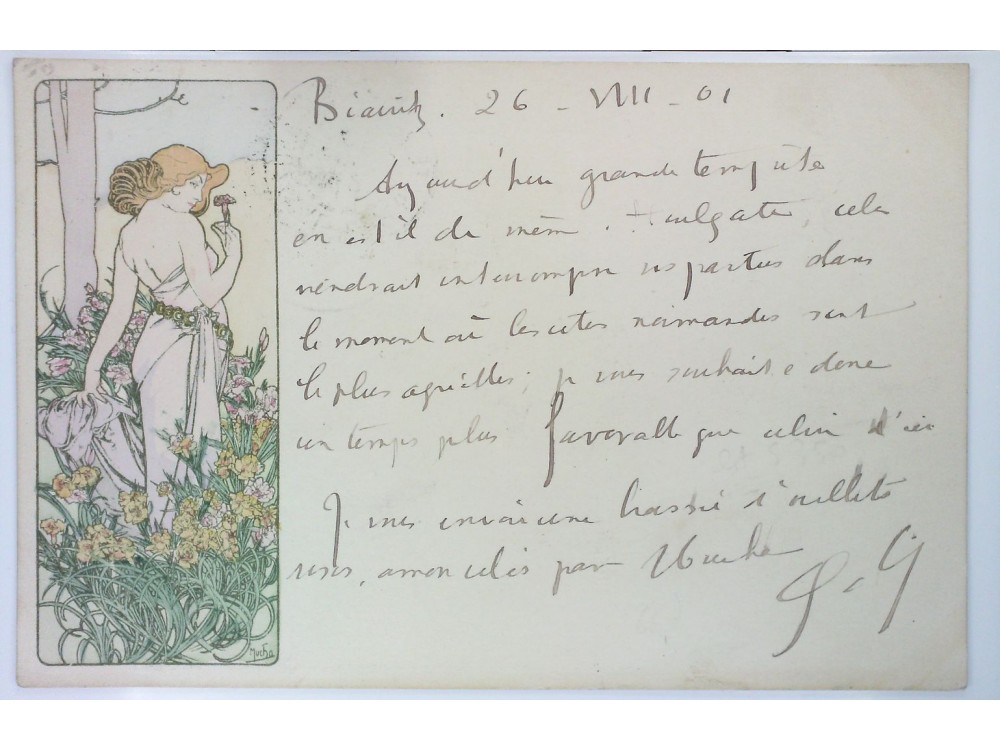 Biarritz. 26 - VIII - 01
Aujourd'hui grande tempête
en est il de même à Houlgate, cela
viendrait interrompre vos parties dans
le moment où les côtes normandes sont
le plus agréables; je vous souhaite donc
un temps plus favorable que celui d'ici
Je vous envoie une brassée d'oeillets
roses, amoncelés par Mucha
Mucha